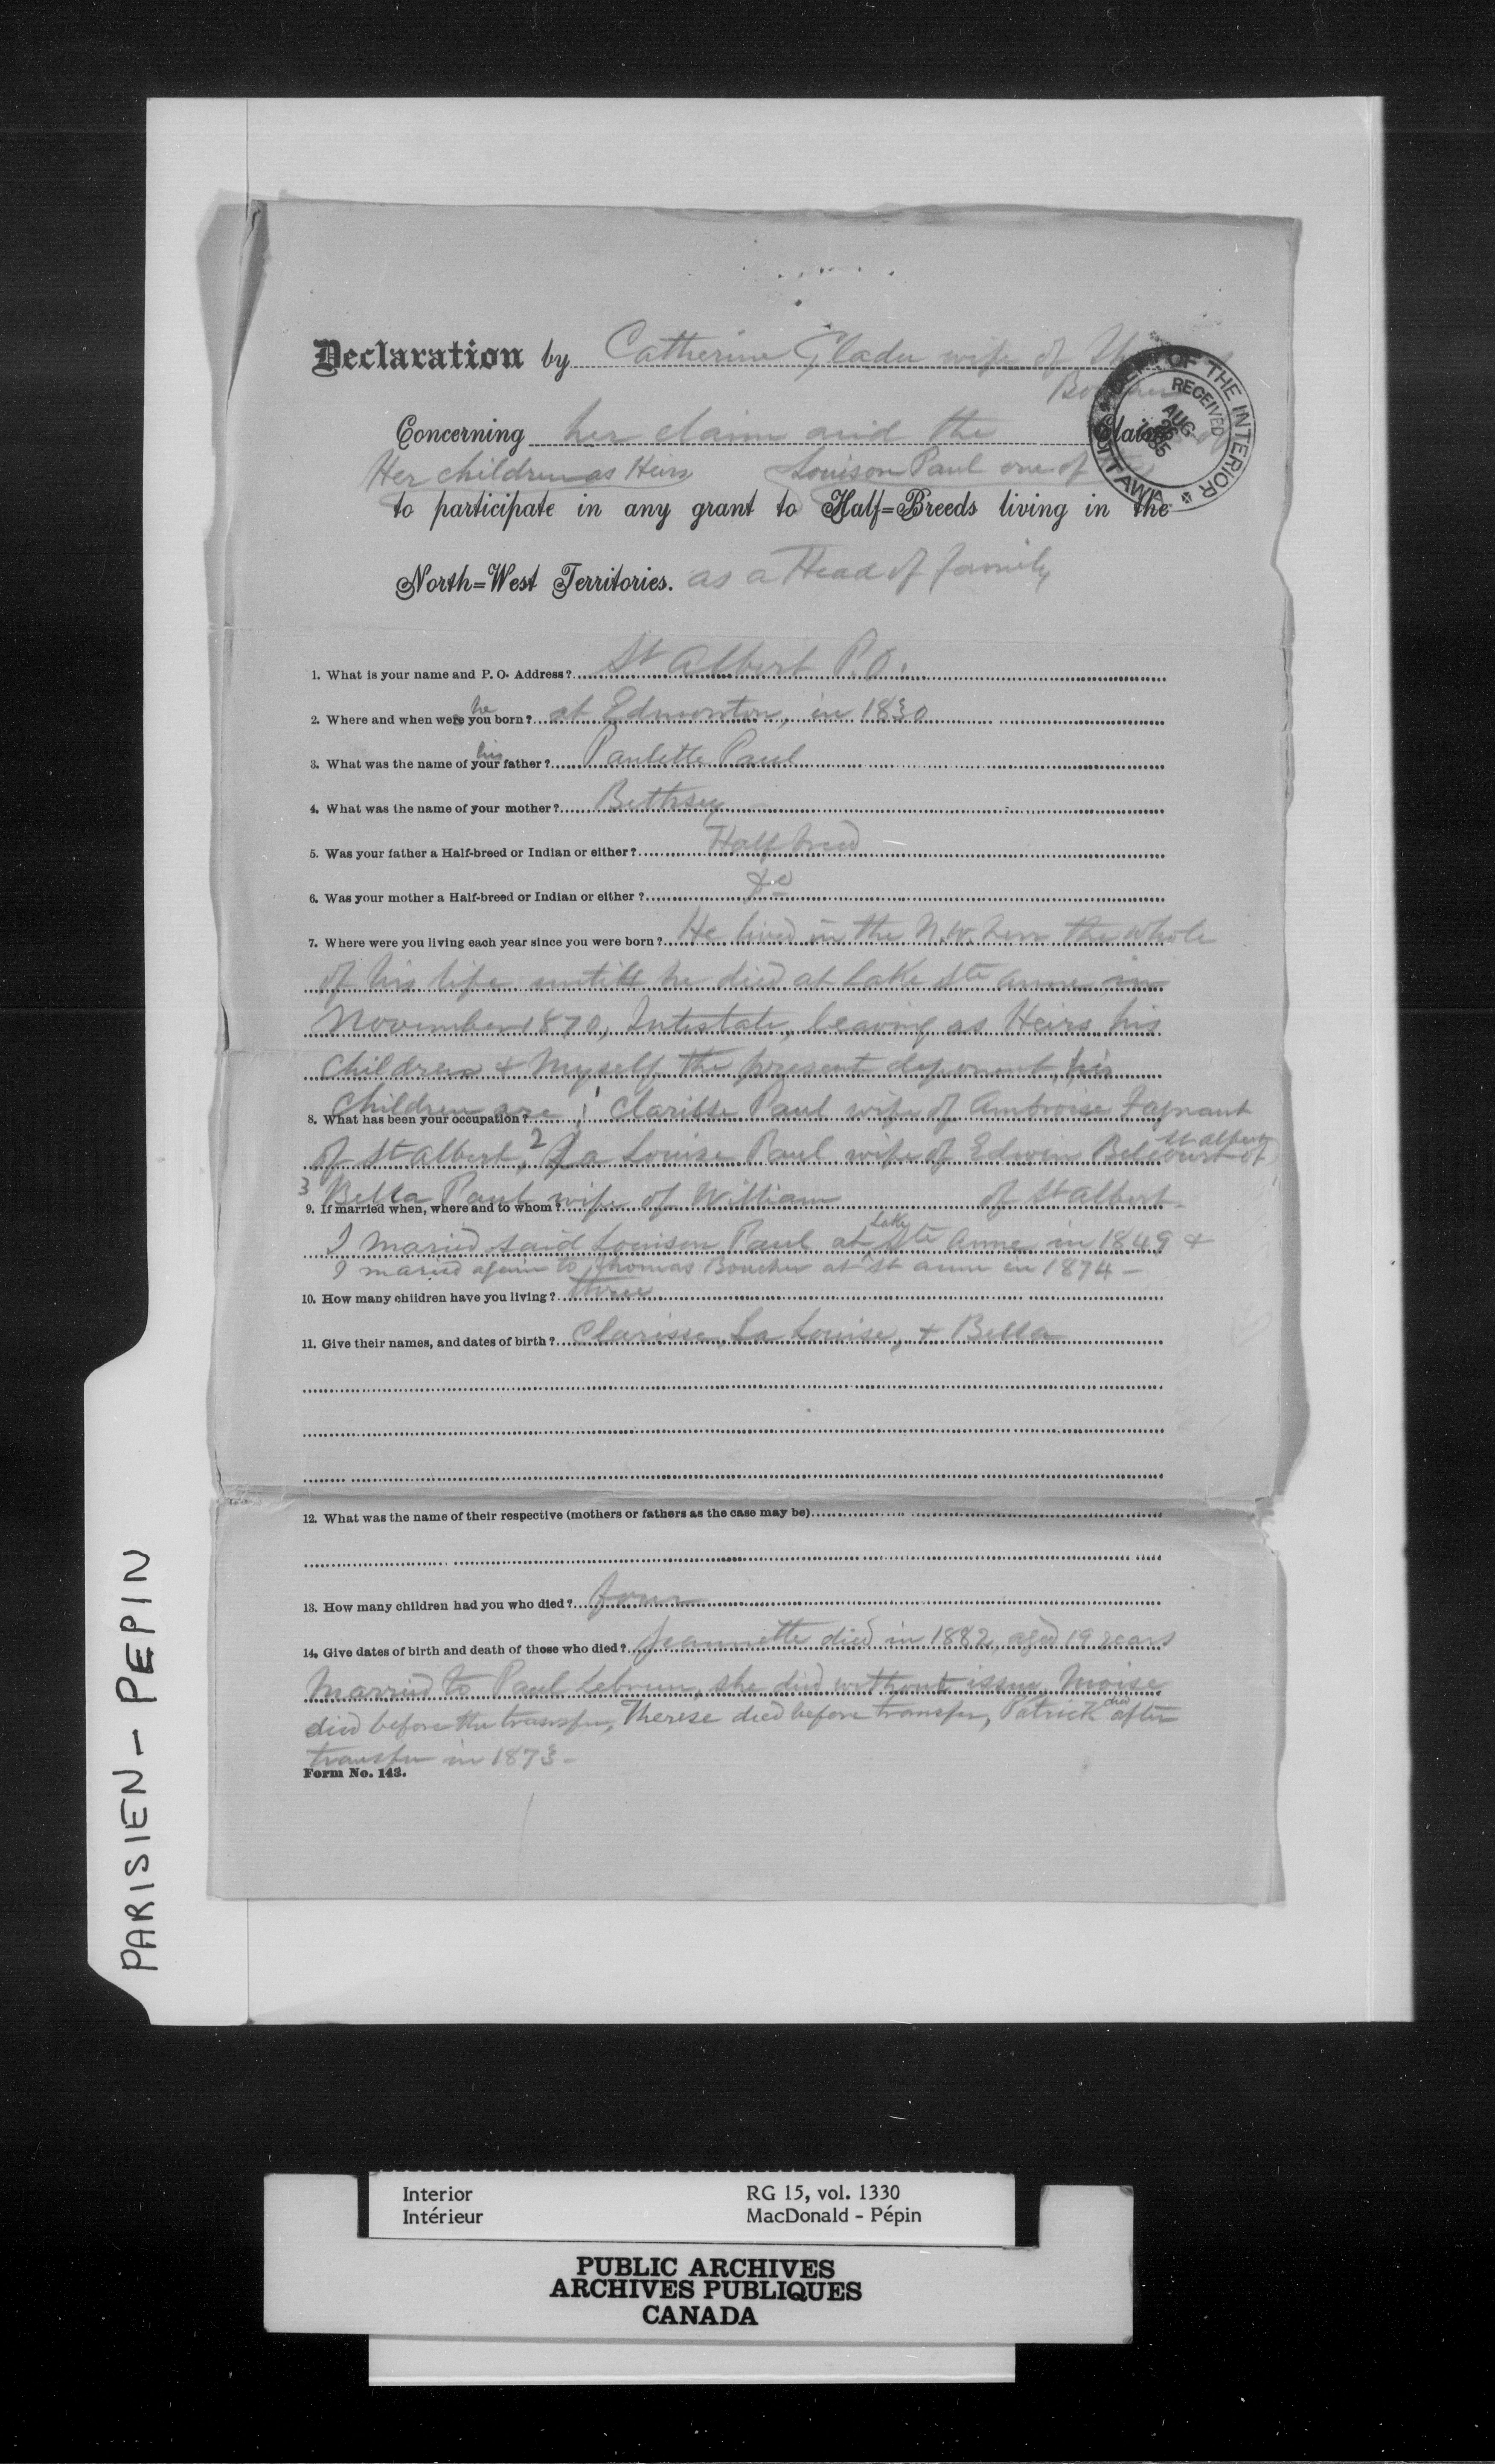 Declaration by Catherine Gladu wife of
Concerning her claim and the Claim
Her children as Heirs Louison Paul one of
to participate in any grant to Half=Breeds living in the
North=West Territories. as a Head of family
DEPT. OF THE INTERIOR
RECEIVED
AUG
1885
OTTAWA
1. What is your name and P. O. Address? St Albert P.O.
2. Where and when were you he born? at Edmonton, in 1830
3. What was the name of your his father? Paulette Paul
4. What was the name of your mother? Bethsey
5. Was your father a Half-breed or Indian or either? Half breed
6. Was your mother a Half-breed or Indian or either? Do
7. Where were you living each year since you were born? He lived in the N.W. Terr the whole
of his life untill he died at Lake Ste Anne in
November 1870, Intestate, leaving as Heirs his
Children & Myself the present deponent, his
8. What has been your occupation? Children are 1 Clarisse Paul wife of Ambroise Fagnant
of St Albert, 2 La Louise Paul wife of Edwin Belcourt of St Albert
3 Bella Paul wife of William of St Albert
9. If married when, where and to whom?
I maried said Louison Paul at Lake Ste Anne in 1849 &
I maried again to Thomas Boucher at St Anne in 1874 -
10. How many children have you living? three
11. Give their names, and dates of birth? Clarisse, La Louise, & Bella
12. What was the name of their respective (mothers or fathers as the case may be)
13. How many children had you who died? four
14. Give dates of birth and death of those who died? Jeannette died in 1882, aged 19 years
Married to Paul Lebrun, she died without issue, Moise
died before the transfer, Therese died before transfer, Patrick died after
transfer in 1873 -
Form No. 143.
PARISIEN - PEPIN
Interior RG 15, vol. 1330
Intérieur MacDonald - Pépin
PUBLIC ARCHIVES
ARCHIVES PUBLIQUES
CANADA